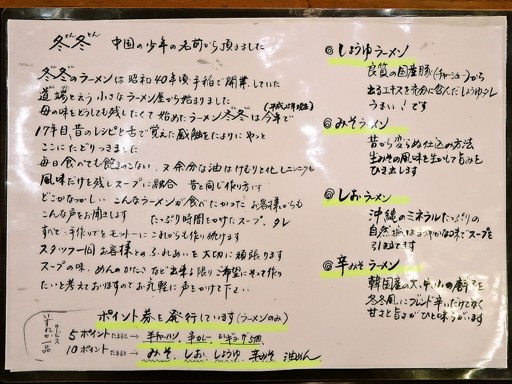 冬冬 とんとん 中国の少年の名前から頂きました
冬冬のラーメンは昭和40年頃手稲で開業していた
道端と云う小さなラーメン屋から始まりました
(平成12年現在)
母の味をどうしても残したくて始めたラーメン冬冬は今年で
17年目、昔のレシピと舌で覚えた感触をたよりにやっと
ここにたどりつきました
毎日食べても飽きのこない 又余分な油はけむりと化しニンニクも
風味だけを残しスープに融合 昔と同じ作り方です
どこかなつかしい こんなラーメンが食べたかった お客様からも
こんな声をお聞きします たっぷり時間をかけたスープ、タレ
すべて手作りをモットーにこれからも作り続けます
スタッフ一同お客様とのふれあいを大切に頑張ります
スープの味、めんのかたさなど出来る限りご希望にそって作り
たいと考えておりますのでお気軽に声をかけて下さい
ポイント券を発行しています(ラーメンのみ)
いずれか一品 サービス
5ポイントたまると→ 半チャーハン、半カレー、ギョーザ5個
10ポイントたまると→ みそ、しお、しょうゆ、辛みそ 油めん
◎しょうゆラーメン
良質の国産豚(チャーシュー)から
出るエキスを充分に含んだしょうゆダレ
うまい!です
◎みそラーメン
昔から変らぬ仕込み方法
生みその風味を生かして旨みを
ひき出します
◎しおラーメン
沖縄のミネラルたっぷりの
自然塩はまろやかな味でスープを
引き立てます
◎辛みそラーメン
韓国産の大、中、小の唐辛子を
冬冬風にブレンド辛いだけでなく
甘さと旨さがひと味ちがいます